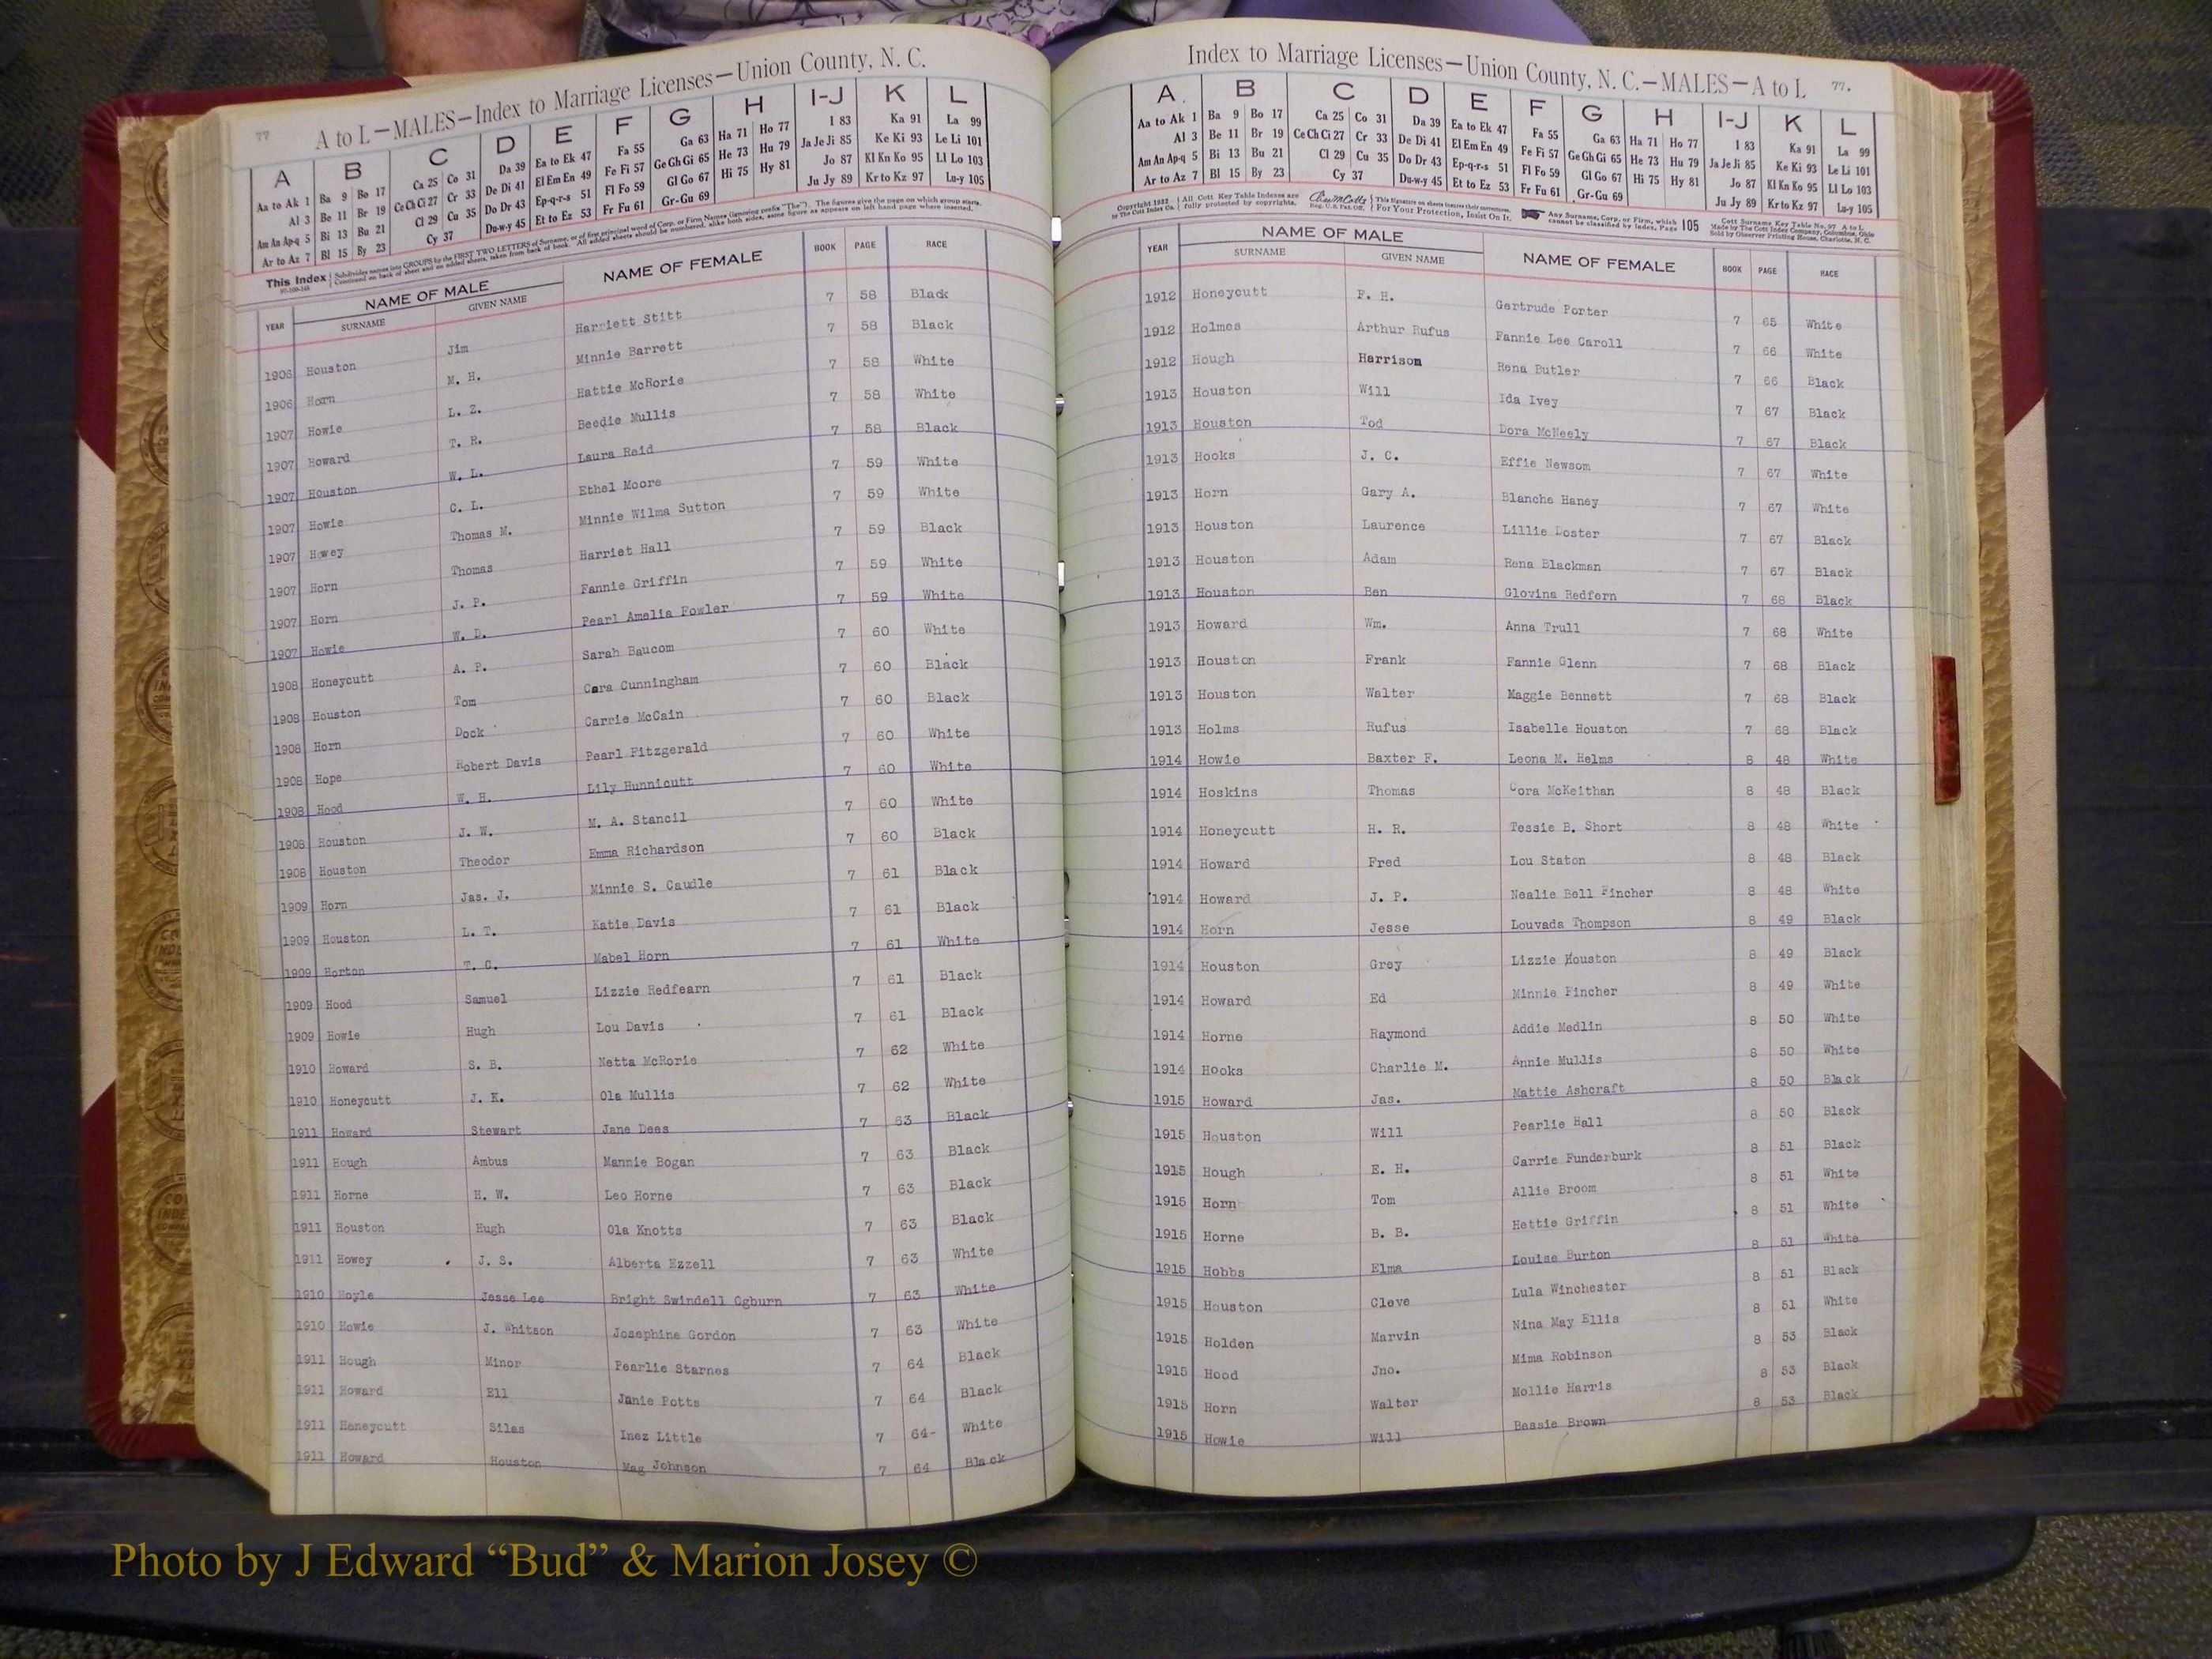 77 A to L—MALES—Index to Marriage Licenses—Union County, N. C.
A B C D E F G H I-J K L
Aa to Ak 1 Ba 9 Bo 17 Ca 25 Co 31 Da 39 Ea to Ek 47 Fa 55 Ga 63 Ha 71 Ho 77 I 83 Ka 91 La 99
Al 3 Be 11 Br 19 Ce Ch Ci 27 Cr 33 De Di 41 El Em En 49 Fe Fi 57 Ge Gh Gi 65 He 73 Hu 79 Ja Je Ji 85 Ke Ki 93 Le Li 101
Am An Ap-q 5 Bi 13 Bu 21 Cl 29 Cu 35 Do Dr 43 Ep-q-r-s 51 Fl Fo 59 Gl Go 67 Hi 75 Hy 81 Jo 87 Kl Kn Ko 95 Ll Lo 103
Ar to Az 7 Bl 15 By 23 Cy 37 Du-w-y 45 Et to Ez 53 Fr Fu 61 Gr-Gu 69 Ju Jy 89 Kr to Kz 97 Lu-y 105
This Index Subdivides names into GROUPS by the FIRST TWO LETTERS of Surname, or of first principal word of Corp. or Firm Names (ignoring prefix "The"). The figures give the page on which group starts.
Continued on back of sheet and on added sheets, taken from back of book. All added sheets should be numbered, alike both sides, same figure as appears on left hand page where inserted.
YEAR NAME OF MALE SURNAME GIVEN NAME NAME OF FEMALE BOOK PAGE RACE
1906 Houston Jim Harriett Stitt 7 58 Black
1906 Horn M. H. Minnie Barrett 7 58 Black
1907 Howie L. Z. Hattie McRorie 7 58 White
1907 Howard T. R. Beedie Mullis 7 58 White
1907 Houston W. L. Laura Reid 7 58 Black
1907 Howie C. L. Ethel Moore 7 59 White
1907 Howey Thomas M. Minnie Wilma Sutton 7 59 White
1907 Horn Thomas Harriet Hall 7 59 Black
1907 Horn J. P. Fannie Griffin 7 59 White
1907 Howie W. D. Pearl Amelia Fowler 7 59 White
1908 Honeycutt A. P. Sarah Baucom 7 60 White
1908 Houston Tom Cora Cunningham 7 60 Black
1908 Horn Dock Carrie McCain 7 60 Black
1908 Hope Robert Davis Pearl Fitzgerald 7 60 White
1908 Hood W. H. Lily Hunnicutt 7 60 White
1908 Houston J. W. M. A. Stancil 7 60 White
1908 Houston Theodor Emma Richardson 7 60 Black
1909 Horn Jas. J. Minnie S. Caudle 7 61 Black
1909 Houston L. T. Katie Davis 7 61 Black
1909 Horton T. C. Mabel Horn 7 61 White
1909 Hood Samuel Lizzie Redfearn 7 61 Black
1909 Howie Hugh Lou Davis 7 61 Black
1910 Howard S. B. Netta McRorie 7 62 White
1910 Honeycutt J. K. Ola Mullis 7 62 White
1911 Howard Stewart Jane Dees 7 63 Black
1911 Hough Ambus Mannie Bogan 7 63 Black
1911 Horne H. W. Leo Horne 7 63 Black
1911 Houston Hugh Ola Knotts 7 63 Black
1911 Howey J. S. Alberta Ezzell 7 63 White
1910 Hoyle Jesse Lee Bright Swindell Ogburn 7 63 White
1910 Howie J. Whitson Josephine Gordon 7 63 White
1911 Hough Minor Pearlie Starnes 7 64 Black
1911 Howard Ell Janie Potts 7 64 Black
1911 Honeycutt Silas Inez Little 7 64- White
1911 Howard Houston Mag Johnson 7 64 Black
Index to Marriage Licenses—Union County, N. C.—MALES—A to L 77.
A B C D E F G H I-J K L
Aa to Ak 1 Ba 9 Bo 17 Ca 25 Co 31 Da 39 Ea to Ek 47 Fa 55 Ga 63 Ha 71 Ho 77 I 83 Ka 91 La 99
Al 3 Be 11 Br 19 Ce Ch Ci 27 Cr 33 De Di 41 El Em En 49 Fe Fi 57 Ge Gh Gi 65 He 73 Hu 79 Ja Je Ji 85 Ke Ki 93 Le Li 101
Am An Ap-q 5 Bi 13 Bu 21 Cl 29 Cu 35 Do Dr 43 Ep-q-r-s 51 Fl Fo 59 Gl Go 67 Hi 75 Hy 81 Jo 87 Kl Kn Ko 95 Ll Lo 103
Ar to Az 7 Bl 15 By 23 Cy 37 Du-w-y 45 Et to Ez 53 Fr Fu 61 Gr-Gu 69 Ju Jy 89 Kr to Kz 97 Lu-y 105
All Cott Key Table Indexes are fully protected by copyrights. For Your Protection, Insist On It. Any Surname, Corp. or Firm, which cannot be classified by Index, Page 105
Cott Surname Key Table No. 97 A to L Made by The Cott Index Company, Columbus, Ohio Sold by Observer Printing House, Charlotte, N. C.
YEAR NAME OF MALE SURNAME GIVEN NAME NAME OF FEMALE BOOK PAGE RACE
1912 Honeycutt F. H. Gertrude Porter 7 65 White
1912 Holmes Arthur Rufus Fannie Lee Caroll 7 66 White
1912 Hough Harrison Rena Butler 7 66 Black
1913 Houston Will Ida Ivey 7 67 Black
1913 Houston Tod Dora McNeely 7 67 Black
1913 Hooks J. C. Effie Newsom 7 67 White
1913 Horn Gary A. Blanche Haney 7 67 White
1913 Houston Laurence Lillie Doster 7 67 Black
1913 Houston Adam Rena Blackman 7 67 Black
1913 Houston Ben Glovina Redfern 7 68 Black
1913 Howard Wm. Anna Trull 7 68 White
1913 Houston Frank Fannie Glenn 7 68 Black
1913 Houston Walter Maggie Bennett 7 68 Black
1913 Holms Rufus Isabelle Houston 7 68 Black
1914 Howie Baxter F. Leona M. Helms 8 48 White
1914 Hoskins Thomas Cora McKeithan 8 48 Black
1914 Honeycutt H. R. Tessie B. Short 8 48 White
1914 Howard Fred Lou Staton 8 48 Black
1914 Howard J. P. Nealie Bell Fincher 8 48 White
1914 Horn Jesse Louvada Thompson 8 49 Black
1914 Houston Grey Lizzie Houston 8 49 Black
1914 Howard Ed Minnie Fincher 8 49 White
1914 Horne Raymond Addie Medlin 8 50 White
1914 Hooks Charlie M. Annie Mullis 8 50 White
1915 Howard Jas. Mattie Ashcraft 8 50 Black
1915 Houston Will Pearlie Hall 8 50 Black
1915 Hough E. H. Carrie Funderburk 8 51 Black
1915 Horn Tom Allie Broom 8 51 White
1915 Horne B. B. Hettie Griffin 8 51 White
1915 Hobbs Elma Louise Burton 8 51 White
1915 Houston Cleve Lula Winchester 8 51 Black
1915 Holden Marvin Nina May Ellis 8 51 White
1915 Hood Jno. Mima Robinson 8 53 Black
1915 Horn Walter Mollie Harris 8 53 Black
1915 Howie Will Bessie Brown 8 53 Black
Photo by J Edward “Bud” & Marion Josey ©